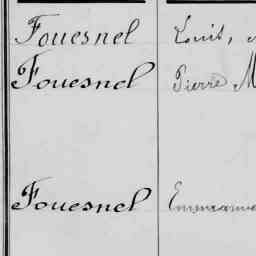 Fouesnel Louis,
Fouesnel Pierre M
Fouesnel